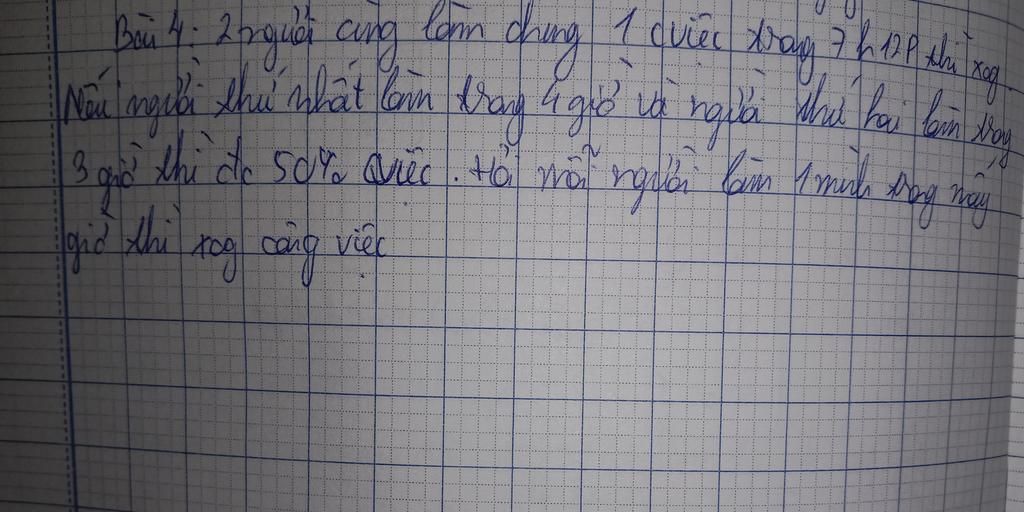 Bài 4: 2 người cùng làm chung 1 cviệc trong 7h12P thì xog
Nếu người thứ nhất làm trong 4 giờ và người thứ hai làm trog
3 giờ thì đc 50% cviệc. Hỏi mỗi người làm 1 mình trog mấy
giờ thì xog công việc